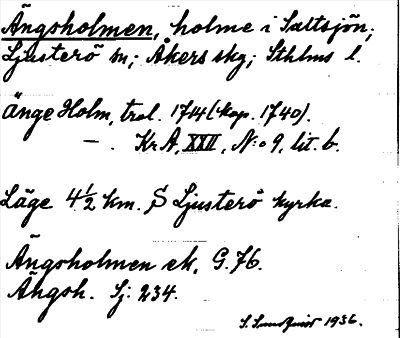 Ängsholmen, holme i Saltsjön;
Ljusterö sn; Åkers skg; Sthlms l.
Änge Holm, trol. 1714 (kop. 1740).
—. Kr A, XXII, N:o 9, lit. b.
Läge 4½ km. S Ljusterö kyrka.
Ängsholmen ek, G. 76.
Ängsh. Sj: 234.
S. Sundquist 1936.